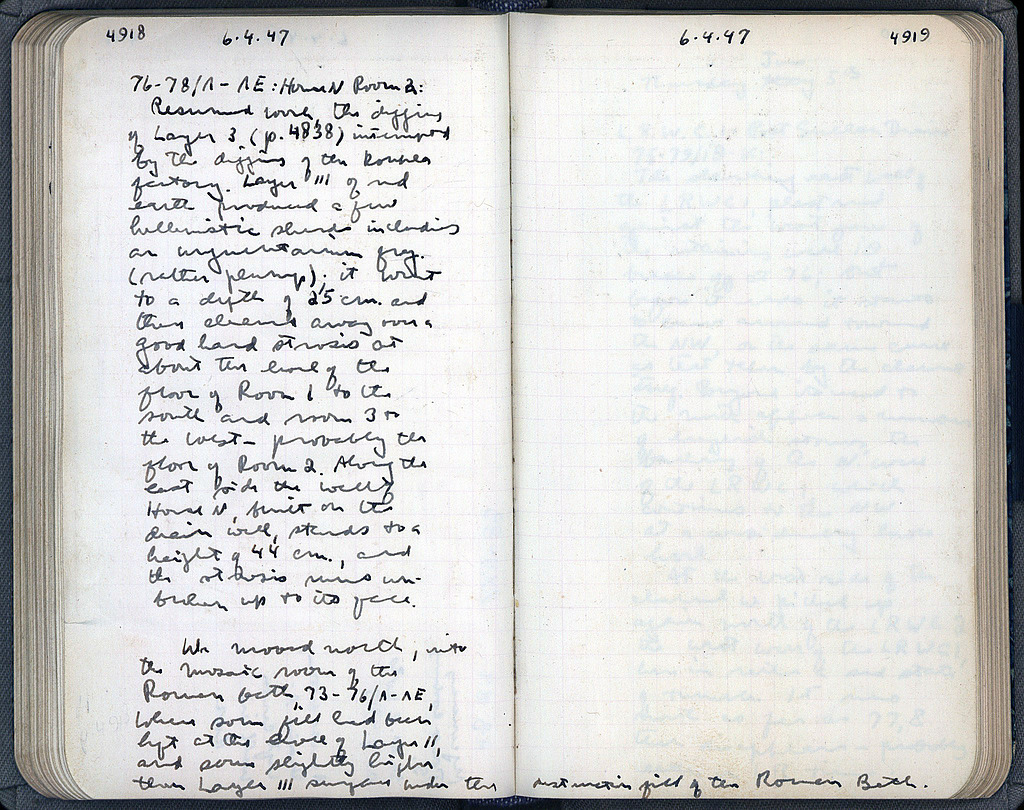 4918
6.4.47
76-78/Λ-ΛE: House N Room 2:
Resumed work, the digging
of Layer 3 (p. 4838) interrupted
by the digging of the Roman
factory. Layer III of red
earth produced a few
hellenistic sherds including
an unguentarium frag.
(rather plump); it went
to a depth of 25 cm. and
then cleaned away over a
good hard strosis at
about the level of the
floor of Room 1 to the
south and room 3 to
the west - probably the
floor of Room 2. Along the
east side the wall of
House N, built on the
drain wall, stands to a
height of 44 cm., and
the strosis runs un-
broken up to its face.
We moved north, into
the mosaic room of the
Roman bath, 73-76/Λ-ΛE,
where some fill had been
left at the close of Layer II,
and some slightly higher
than Layer III under the destruction fill of the Roman Bath.
6.4.47
4919